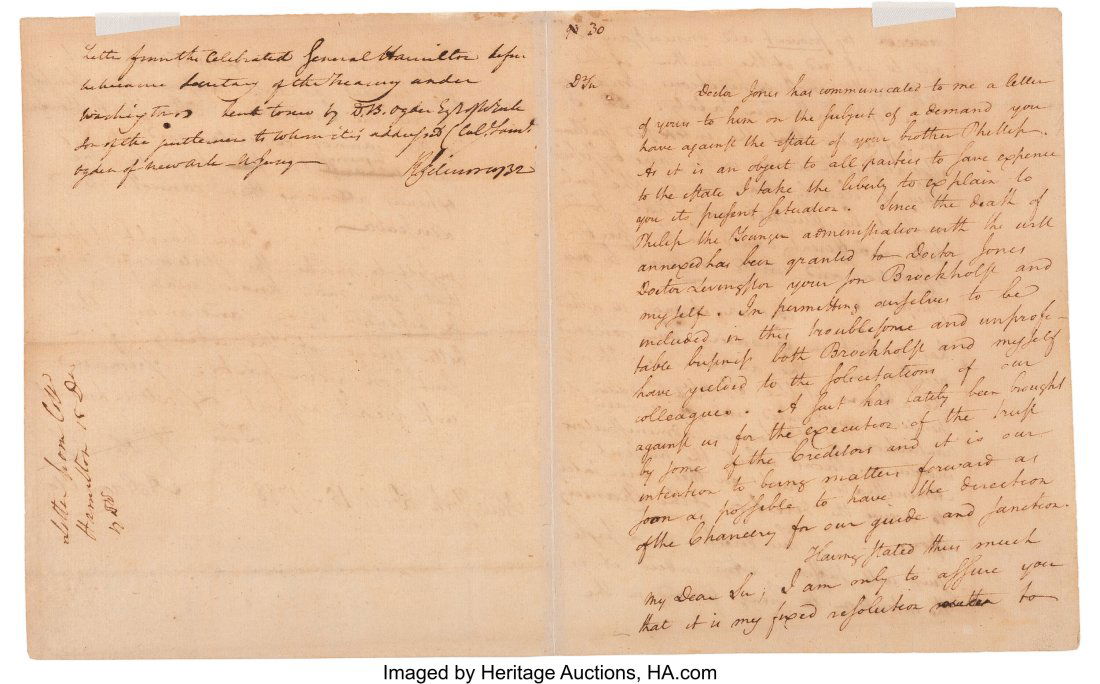 Letter from the Celebrated General Hamilton before
he became Secretary of the Treasury under
Washington sent to me by D. B. Ogden Esqr
son of the gentleman to whom it is addressed (Col.
Ogden of Newark N Jersey
1832
Letter from Coll.
Hamilton 15 Der
30
Dr Sir
Doctor Jones has communicated to me a letter
of yours to him on the subject of a demand you
have against the estate of your brother Phillip.
As it is an object to all parties to save expence
to the estate I take the liberty to explain to
you its present situation. Since the death of
Philip the Younger administration with the will
annexed has been granted to Doctor Jones
Doctor Livingston your son Brockholst and
myself. In permitting ourselves to be
included in this troublesome and unprofi-
table business both Brockholst and myself
have yielded to the solicitations of our
colleagues. A suit has lately been brought
against us for the execution of the trust
by some of the Creditors and it is our
intention to bring matters forward as
soon as possible to have the direction
of the Chancery for our guide and sanction.
Having stated thus much
my Dear Sir; I am only to assure you
that it is my fixed resolution to
Imaged by Heritage Auctions, HA.com